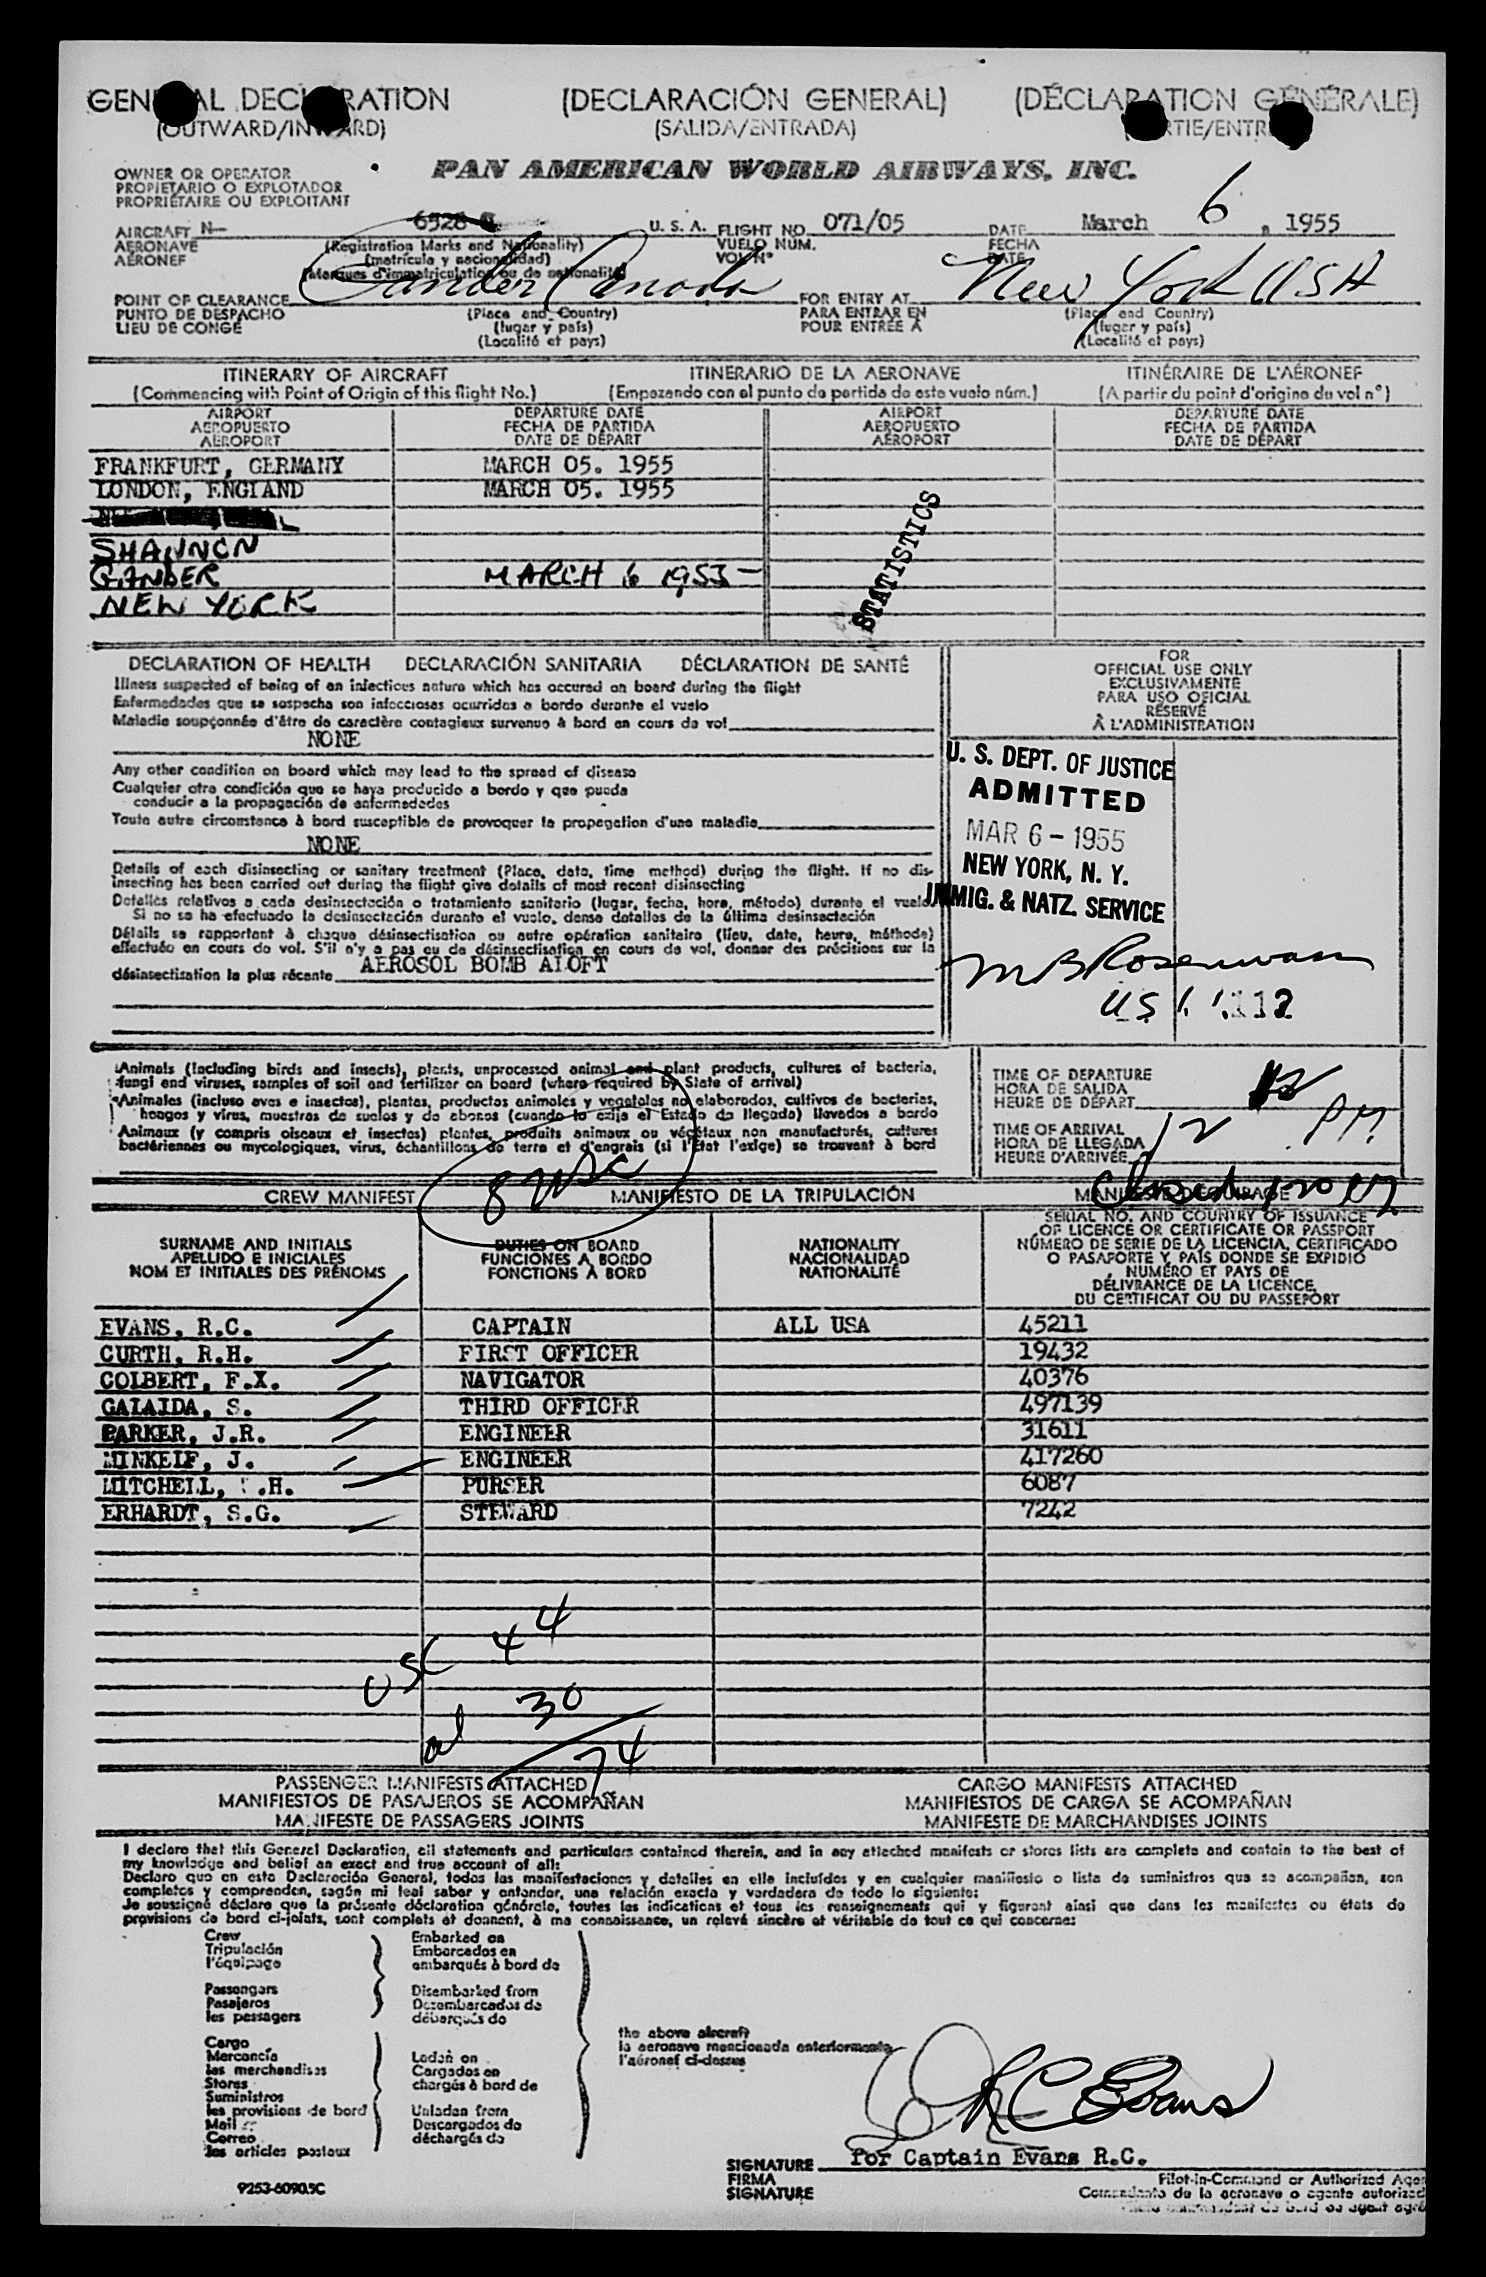 GENERAL DECLARATION (DECLARACIÓN GENERAL) (DÉCLARATION GÉNÉRALE)
(OUTWARD/INWARD) (SALIDA/ENTRADA) (SORTIE/ENTRÉE)
OWNER OR OPERATOR
PROPIETARIO O EXPLOTADOR
PROPRIÉTAIRE OU EXPLOITANT
PAN AMERICAN WORLD AIRWAYS, INC.
AIRCRAFT N- 6528 U. S. A. FLIGHT NO. 071/05 DATE March 6, 1955
AERONAVE (Registration Marks and Nationality) VUELO NÚM. FECHA
AÉRONEF (matrícula y nacionalidad) VOL Nº DATE
(Marques d'immatriculation ou de nationalité)
POINT OF CLEARANCE Gander Canada FOR ENTRY AT New York USA
PUNTO DE DESPACHO (Place and Country) PARA ENTRAR EN (Place and Country)
LIEU DE CONGÉ (lugar y país) POUR ENTRÉE À (lugar y país)
(Localité et pays) (Localité et pays)
ITINERARY OF AIRCRAFT ITINERARIO DE LA AERONAVE ITINÉRAIRE DE L'AÉRONEF
(Commencing with Point of Origin of this flight No.) (Empezando con el punto de partida de este vuelo núm.) (A partir du point d'origine du vol nº)
AIRPORT DEPARTURE DATE AIRPORT DEPARTURE DATE
AEROPUERTO FECHA DE PARTIDA AEROPUERTO FECHA DE PARTIDA
AÉROPORT DATE DE DÉPART AÉROPORT DATE DE DÉPART
FRANKFURT, GERMANY MARCH 05. 1955
LONDON, ENGLAND MARCH 05. 1955
SHANNON
GANDER MARCH 6 1955 -
NEW YORK
STATISTICS
DECLARATION OF HEALTH DECLARACIÓN SANITARIA DÉCLARATION DE SANTÉ
Illness suspected of being of an infectious nature which has occured on board during the flight
Enfermedades que se sospecha son infecciosas ocurridas a bordo durante el vuelo
Maladie soupçonnée d'être de caractère contagieux survenue à bord en cours de vol
NONE
Any other condition on board which may lead to the spread of disease
Cualquier otra condición que se haya producido a bordo y que pueda
conducir a la propagación de enfermedades
Toute autre circonstance à bord susceptible de provoquer la propagation d'une maladie
NONE
Details of each disinsecting or sanitary treatment (Place, date, time method) during the flight. If no dis-
insecting has been carried out during the flight give details of most recent disinsecting
Detalles relativos a cada desinsectación o tratamiento sanitario (lugar, fecha, hora, método) durante el vuelo.
Si no se ha efectuado la desinsectación durante el vuelo, dense detalles de la última desinsectación
Détails se rapportant à chaque désinsectisation ou autre opération sanitaire (lieu, date, heure, méthode)
effectuée en cours de vol. S'il n'y a pas eu de désinsectisation en cours de vol, donner des précitions sur la
désinsectisation la plus récente AEROSOL BOMB ALOFT
FOR
OFFICIAL USE ONLY
EXCLUSIVAMENTE
PARA USO OFICIAL
RÉSERVÉ
À L'ADMINISTRATION
U. S. DEPT. OF JUSTICE
ADMITTED
MAR 6 - 1955
NEW YORK, N. Y.
IMMIG. & NATZ. SERVICE
US
Animals (Including birds and insects), plants, unprocessed animal and plant products, cultures of bacteria,
fungi and viruses, samples of soil and fertilizer on board (where required by State of arrival)
Animales (incluso aves e insectos), plantas, productos animales y vegetales no elaborados, cultivos de bacterias,
hongos y virus, muestras de suelos y de abonos (cuando lo exija el Estado de llegada) llevados a bordo
Animaux (y compris oiseaux et insectes) plantes, produits animaux ou végétaux non manufacturés, cultures
bactériennes ou mycologiques, virus, échantillons de terre et d'engrais (si l'État l'exige) se trouvant à bord
TIME OF DEPARTURE
HORA DE SALIDA
HEURE DE DÉPART
TIME OF ARRIVAL
HORA DE LLEGADA
HEURE D'ARRIVÉE
12 PM
8 USC
CREW MANIFEST MANIFIESTO DE LA TRIPULACIÓN
SURNAME AND INITIALS
APELLIDO E INICIALES
NOM ET INITIALES DES PRÉNOMS
DUTIES ON BOARD
FUNCIONES A BORDO
FONCTIONS À BORD
NATIONALITY
NACIONALIDAD
NATIONALITÉ
SERIAL NO. AND COUNTRY OF ISSUANCE
OF LICENCE OR CERTIFICATE OR PASSPORT
NÚMERO DE SERIE DE LA LICENCIA, CERTIFICADO
O PASAPORTE Y PAÍS DONDE SE EXPIDIÓ
NUMÉRO ET PAYS DE
DÉLIVRANCE DE LA LICENCE,
DU CERTIFICAT OU DU PASSEPORT
EVANS, R.C. CAPTAIN ALL USA 45211
CURTH, R.H. FIRST OFFICER 19432
COLBERT, F.X. NAVIGATOR 40376
GALAIDA, S. THIRD OFFICER 497139
PARKER, J.R. ENGINEER 31611
MINKEIF, J. ENGINEER 417260
MITCHELL, .H. PURSER 6087
ERHARDT, S.G. STEWARD 7242
USC 44
al 30
74
PASSENGER MANIFESTS ATTACHED CARGO MANIFESTS ATTACHED
MANIFIESTOS DE PASAJEROS SE ACOMPAÑAN MANIFIESTOS DE CARGA SE ACOMPAÑAN
MANIFESTE DE PASSAGERS JOINTS MANIFESTE DE MARCHANDISES JOINTS
I declare that this General Declaration, all statements and particulars contained therein, and in any attached manifests or stores lists are complete and contain to the best of
my knowledge and belief an exact and true account of all:
Declaro que en esta Declaración General, todas las manifestaciones y detalles en ella incluídos y en cualquier manifiesto o lista de suministros que se acompañan, son
completos y comprenden, según mi leal saber y entender, una relación exacta y verdadera de todo lo siguiente:
Je soussigné déclare que la présente déclaration générale, toutes les indications et tous les renseignements qui y figurent ainsi que dans les manifestes ou états de
provisions de bord ci-joints, sont complets et donnent, à ma connaissance, un relevé sincère et véritable de tout ce qui concerne:
Crew Embarked on
Tripulación Embarcados en
l'équipage embarqués à bord de
Passengers Disembarked from
Pasajeros Desembarcados de
les passagers débarqués de
the above aircraft
la aeronave mencionada anteriormente
l'aéronef ci-dessus
Cargo
Mercancía Laden on
les marchandises Cargados en
Stores chargés à bord de
Suministros
les provisions de bord Unladen from
Mail Descargados de
Correo déchargés de
les articles postaux
R C Evans
SIGNATURE for Captain Evans R.C.
FIRMA Pilot-in-Command or Authorized Agen
SIGNATURE Comandante de la aeronave o agente autorizad
9253-6090.5C